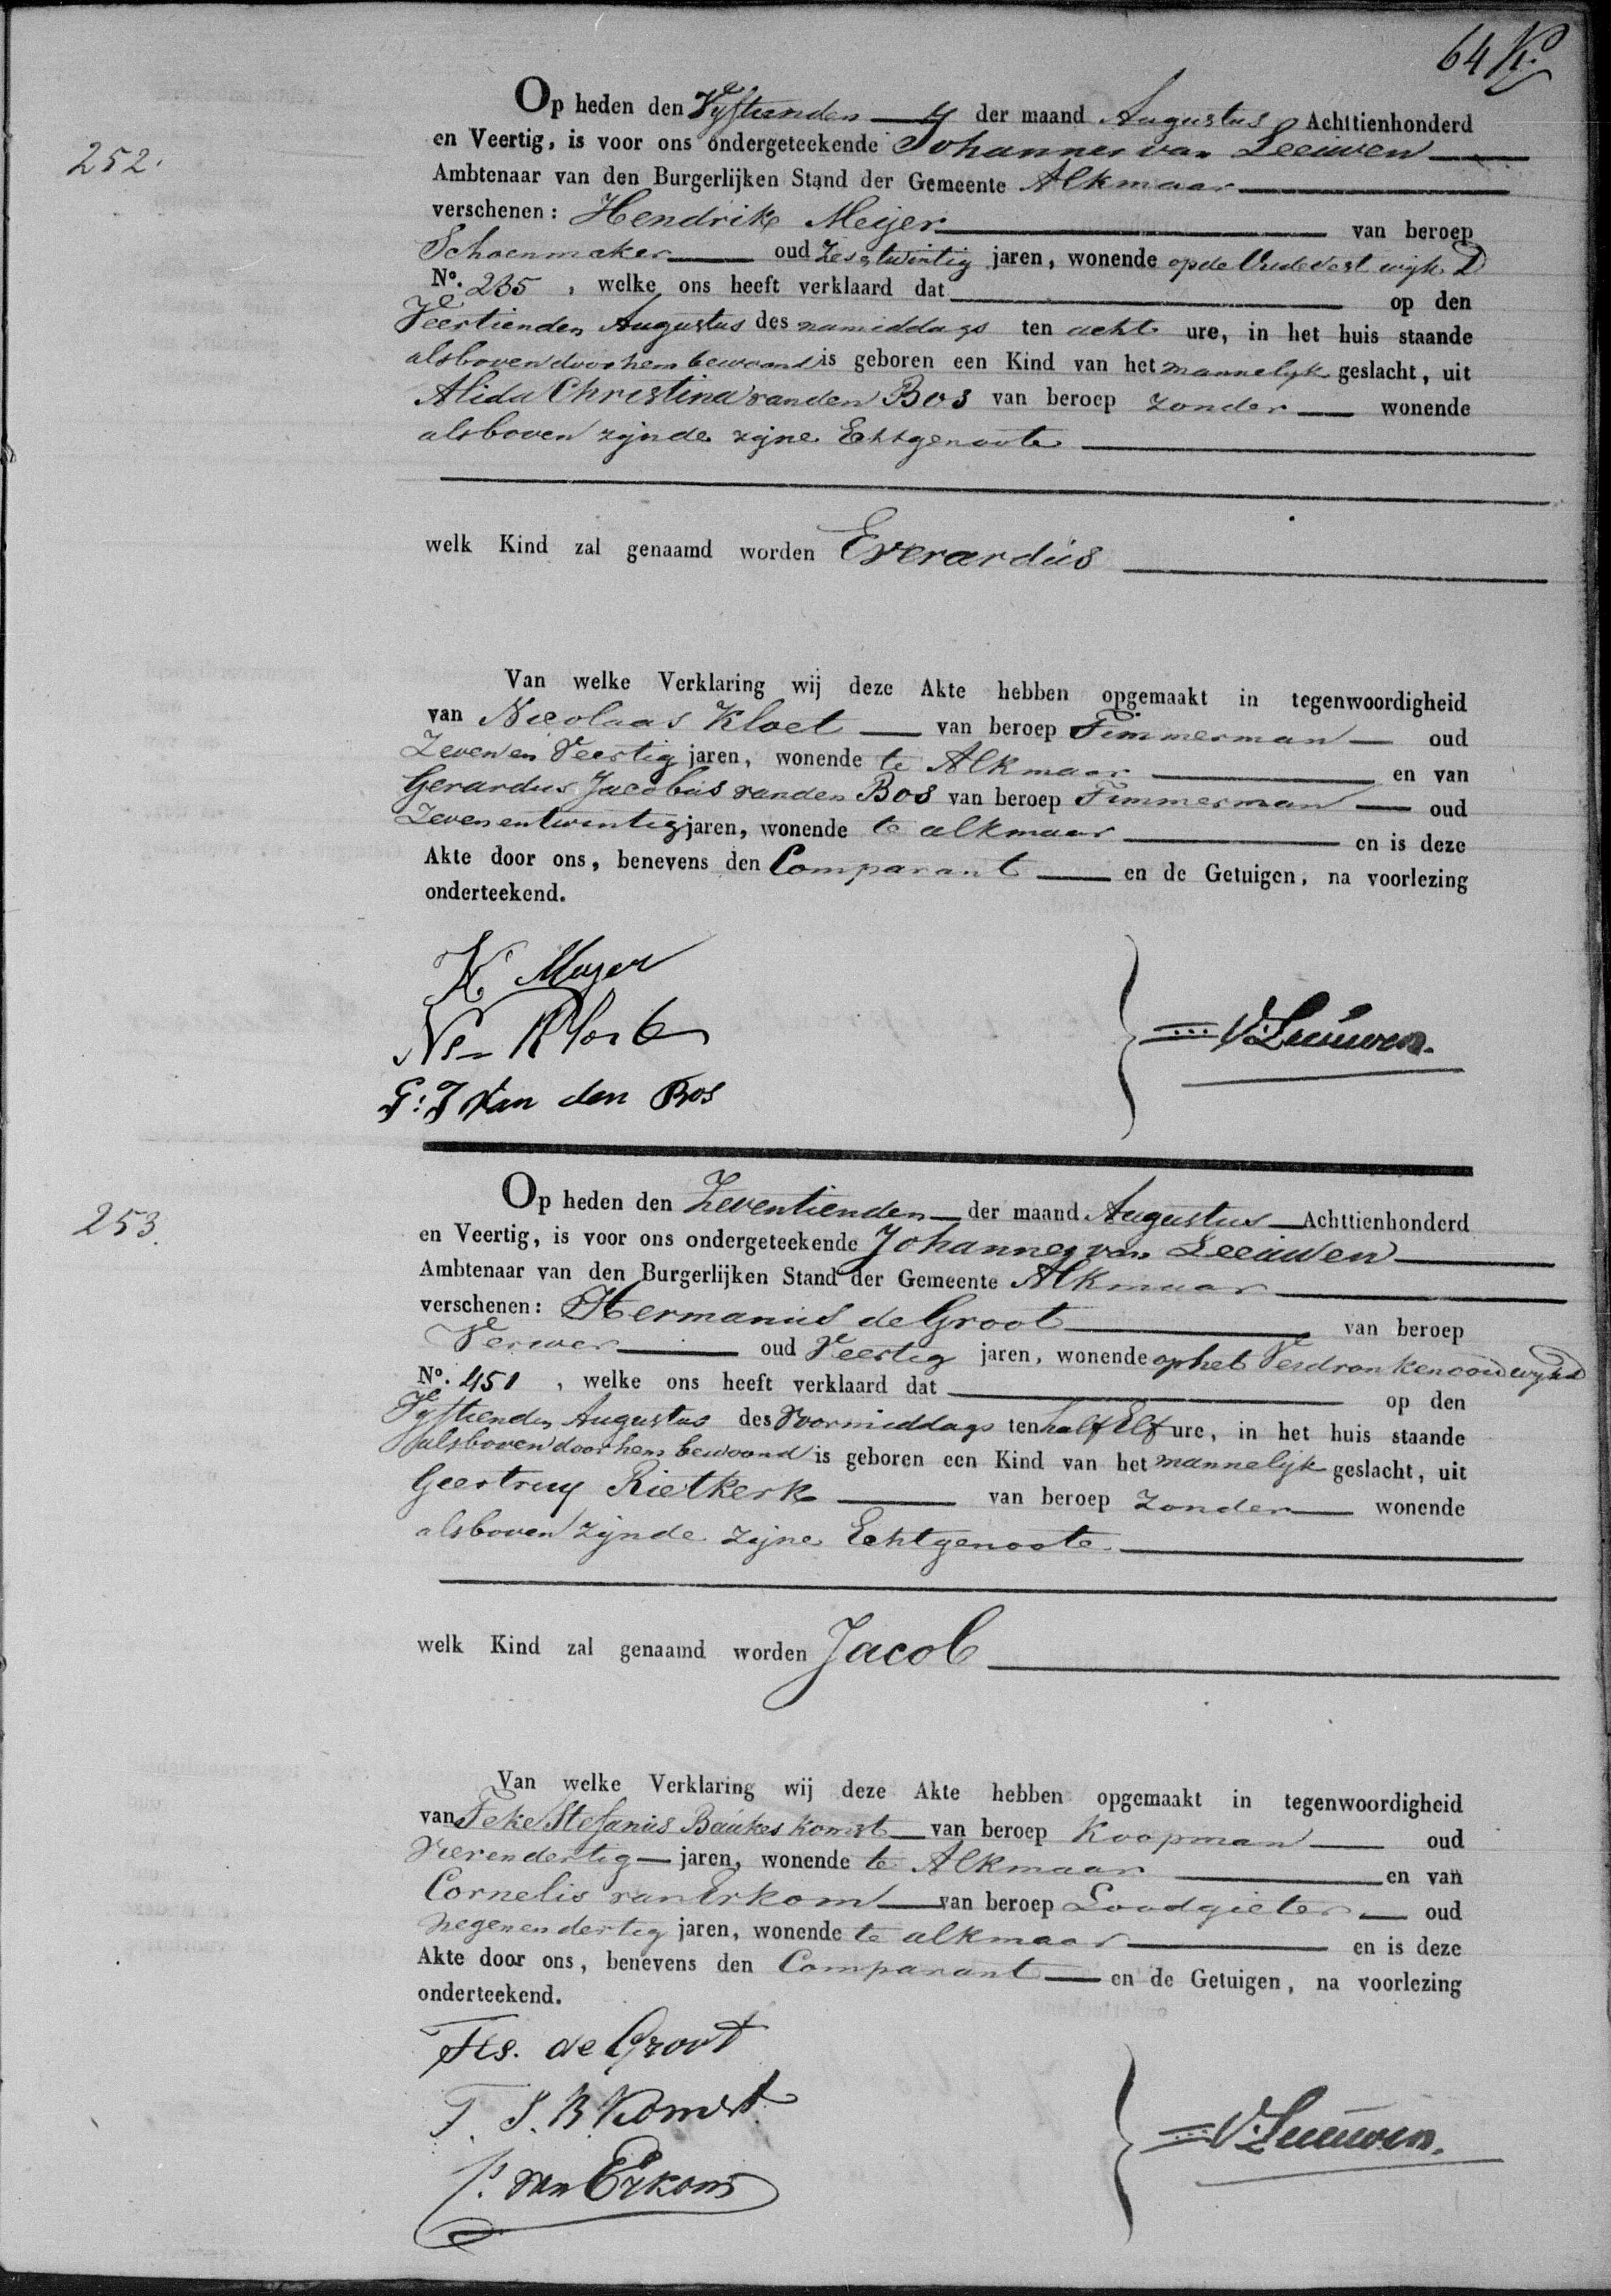 64
252.
Op heden den Vyftienden der maand Augustus Achttienhonderd
en Veertig, is voor ons ondergeteekende Johannes van Leeuwen
Ambtenaar van den Burgerlijken Stand der Gemeente Alkmaar
verschenen: Hendrik Meijer van beroep
Schoenmaker oud Zesstwintig jaren, wonende op de Oude Vest wijk D
No. 235, welke ons heeft verklaard dat op den
Veertienden Augustus des namiddags ten acht ure, in het huis staande
alsboven door hem bewoond is geboren een Kind van het mannelyk geslacht, uit
Alida Christina van den Bos van beroep Zonder wonende
alsboven zijnde zijne Echtgenoote
welk Kind zal genaamd worden Everardus
Van welke Verklaring wij deze Akte hebben opgemaakt in tegenwoordigheid
van Nicolaas Kloet van beroep Timmerman oud
Zeven en Veertig jaren, wonende te Alkmaar en van
Gerardus Jacobus van den Bos van beroep Timmerman oud
Zevenentwintig jaren, wonende te alkmaar en is deze
Akte door ons, benevens den Comparant en de Getuigen, na voorlezing
onderteekend.
H Meyer
Ns Kloet
V. Leeuwen.
G: J Van den Bos
253.
Op heden den Zeventienden der maand Augustus Achttienhonderd
en Veertig, is voor ons ondergeteekende Johannes van Leeuwen
Ambtenaar van den Burgerlijken Stand der Gemeente Alkmaar
verschenen: Hermanus de Groot van beroep
Verwer oud Veertig jaren, wonende op het Verdronkenoord wyk D
No. 451, welke ons heeft verklaard dat op den
Vyftienden Augustus des Voormiddags ten half Elf ure, in het huis staande
alsboven door hem bewoond is geboren een Kind van het mannelijk geslacht, uit
Geertruy Rietkerk van beroep Zonder wonende
alsboven zijnde zijne Echtgenoote
welk Kind zal genaamd worden Jacob
Van welke Verklaring wij deze Akte hebben opgemaakt in tegenwoordigheid
van Feke Stefanus Baukes Komst van beroep Koopman oud
Vierendertig jaren, wonende te Alkmaar en van
Cornelis van Erkom van beroep Loodgieter oud
negenendertig jaren, wonende te alkmaar en is deze
Akte door ons, benevens den Comparant en de Getuigen, na voorlezing
onderteekend.
Hs. de Groot
F. S. B Komst
V. Leeuwen.
C. van Erkom